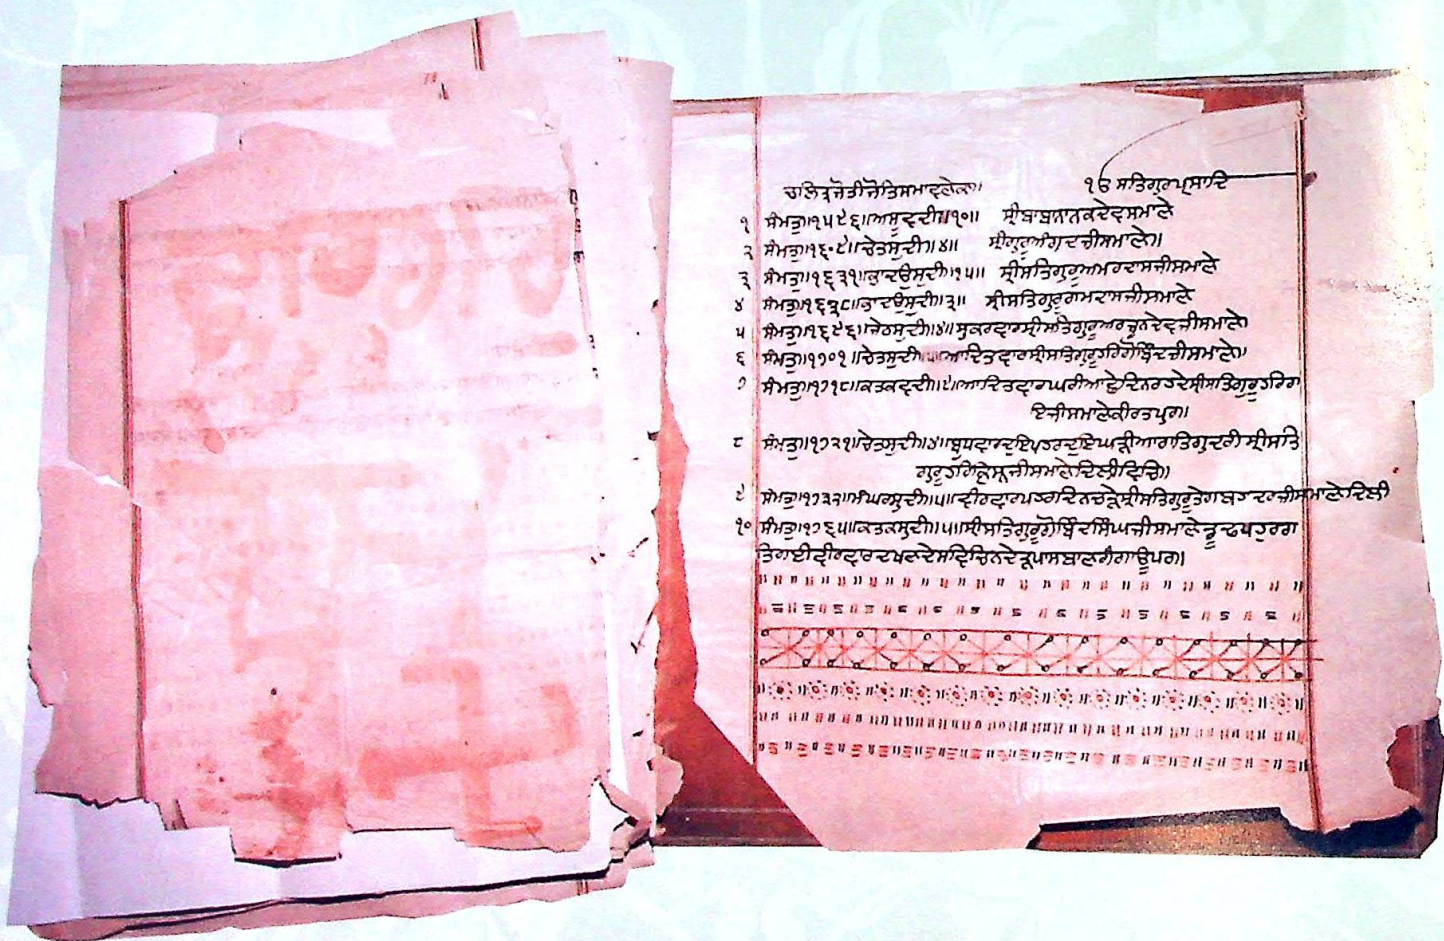 ਚਲਿਤ੍ਰ ਜੋਤੀ ਜੋਤਿ ਸਮਾਵਣੇ ਕਾ॥ ੧ਓ ਸਤਿਗੁਰ ਪ੍ਰਸਾਦਿ
੧ ਸੰਮਤੁ॥੧੫੯੬॥ਅਸੂ ਵਦੀ॥੧੦॥ ਸ੍ਰੀ ਬਾਬਾ ਨਾਨਕ ਦੇਵ ਸਮਾਣੇ
੨ ਸੰਮਤੁ॥੧੬੦੯॥ਚੇਤ ਸੁਦੀ॥੪॥ ਸ੍ਰੀ ਗੁਰੂ ਅੰਗਦ ਜੀ ਸਮਾਣੇ॥
੩ ਸੰਮਤੁ॥੧੬੩੧॥ਭਾਦਉ ਸੁਦੀ॥੧੫॥ ਸ੍ਰੀ ਸਤਿਗੁਰੂ ਅਮਰਦਾਸ ਜੀ ਸਮਾਣੇ
੪ ਸੰਮਤੁ॥੧੬੩੮॥ਭਾਦਉ ਸੁਦੀ॥੩॥ ਸ੍ਰੀ ਸਤਿਗੁਰੂ ਰਾਮਦਾਸ ਜੀ ਸਮਾਣੇ
੫ ਸੰਮਤੁ॥੧੬੬੩॥ਜੇਠ ਸੁਦੀ॥੪॥ ਸੁਕਰਵਾਰ ਸ੍ਰੀ ਸਤਿਗੁਰੂ ਅਰਜੁਨ ਦੇਵ ਜੀ ਸਮਾਣੇ
੬ ਸੰਮਤੁ॥੧੭੦੧॥ਚੇਤ ਸੁਦੀ॥੫॥ਆਦਿਤਵਾਰ ਸ੍ਰੀ ਸਤਿਗੁਰੂ ਹਰਿਗੋਬਿੰਦ ਜੀ ਸਮਾਣੇ॥
੭ ਸੰਮਤੁ॥੧੭੧੮॥ਕਤਕ ਵਦੀ॥੯॥ਆਦਿਤਵਾਰ ਘਰੀ ਆਛੇ ਦਿਨ ਰਹਦੇ ਸ੍ਰੀ ਸਤਿਗੁਰੂ ਹਰਿਰਾ
ਇ ਜੀ ਸਮਾਣੇ ਕੀਰਤਪੁਰ॥
੮ ਸੰਮਤੁ॥੧੭੨੧॥ਚੇਤ ਸੁਦੀ॥੪॥ਬੁਧਵਾਰ ਦੁਇ ਪਹਰ ਦੁਇ ਘੜੀਆ ਰਾਤਿ ਗੁਦਰੀ ਸ੍ਰੀ ਸਤਿ
ਗੁਰੂ ਹਰਿਕ੍ਰਿਸ਼ਨ ਜੀ ਸਮਾਣੇ ਦਿਲੀ ਵਿਚਿ॥
੯ ਸੰਮਤੁ॥੧੭੩੨॥ਮੰਘਰ ਸੁਦੀ॥੫॥ਵੀਰਵਾਰ ਪਹਰ ਦਿਨ ਚੜੇ ਸ੍ਰੀ ਸਤਿਗੁਰੂ ਤੇਗ ਬਹਾਦਰ ਜੀ ਸਮਾਣੇ ਦਿਲੀ
੧੦ ਸੰਮਤੁ॥੧੭੬੫॥ਕਤਕ ਸੁਦੀ॥੫॥ਸ੍ਰੀ ਸਤਿਗੁਰੂ ਗੋਬਿੰਦ ਸਿੰਘ ਜੀ ਸਮਾਣੇ ਡੂਢ ਪਹਰ ਰਾ
ਤਿ ਗਈ ਵੀਰਵਾਰ ਦਖਣ ਦੇਸ ਵਿਚਿ ਨਦੇੜ੍ਹ ਪਾਸ ਬਾਣ ਗੰਗਾ ਊਪਰ॥